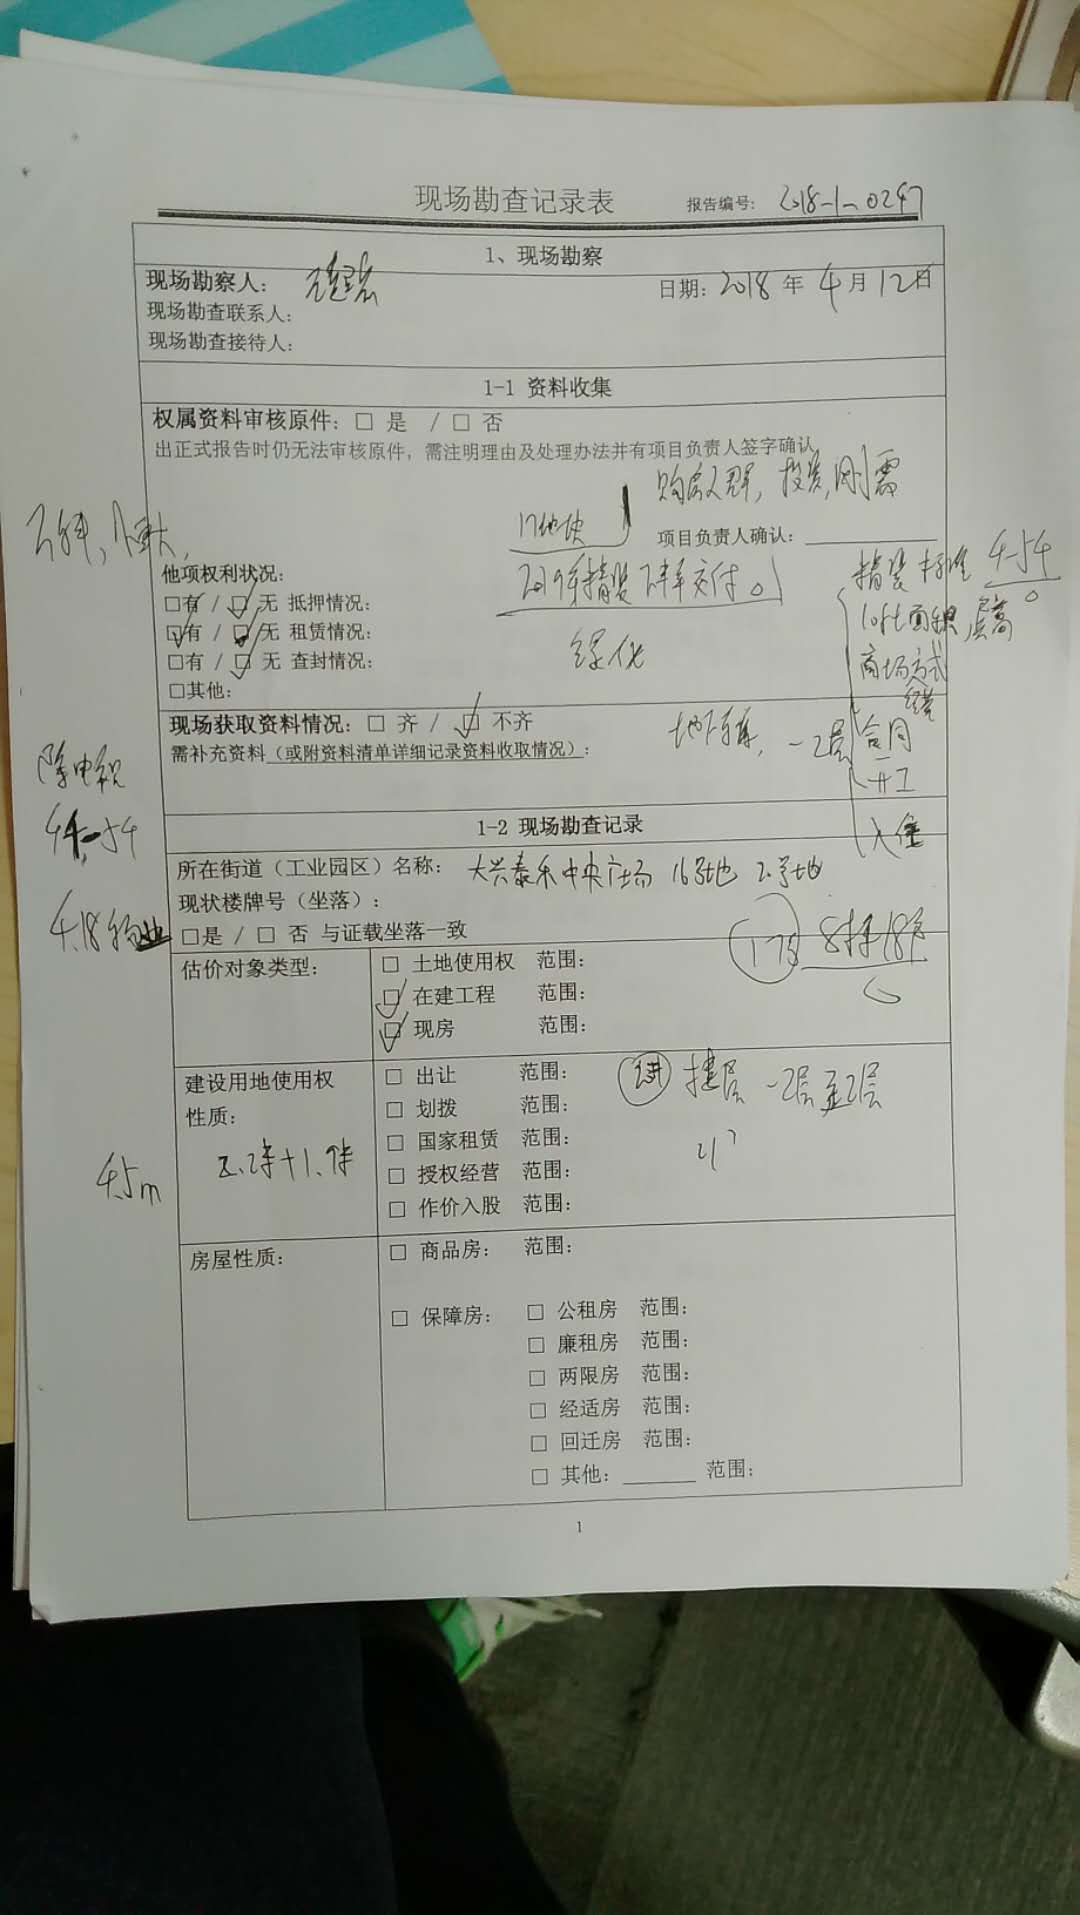 现场勘查记录表 报告编号: 2018-1-0247
1、现场勘察
现场勘察人:
日期: 2018 年 4 月 12 日
现场勘查联系人:
现场勘查接待人:
1-1 资料收集
权属资料审核原件: □ 是 / □ 否
出正式报告时仍无法审核原件,需注明理由及处理办法并有项目负责人签字确认
购房人群, 投资, 刚需
17地块
项目负责人确认:
他项权利状况:
精装 交付。
精装标准 4-54
□有 / □ 无 抵押情况:
loft面积, 层高
□有 / □ 无 租赁情况:
绿化
商场方式
□有 / □ 无 查封情况:
□其他:
现场获取资料情况: □ 齐 / □ 不齐
合同
需补充资料(或附资料清单详细记录资料收取情况):
开工
入住
1-2 现场勘查记录
所在街道(工业园区)名称: 大兴泰禾中央广场 16号地 2号地
现状楼牌号(坐落):
□是 / □ 否 与证载坐落一致
4.18 物业
估价对象类型:
□ 土地使用权 范围:
□ 在建工程 范围:
□ 现房 范围:
建设用地使用权
性质:
□ 出让 范围:
□ 划拨 范围:
□ 国家租赁 范围:
□ 授权经营 范围:
□ 作价入股 范围:
4.5m
房屋性质:
□ 商品房: 范围:
□ 保障房: □ 公租房 范围:
□ 廉租房 范围:
□ 两限房 范围:
□ 经适房 范围:
□ 回迁房 范围:
□ 其他: 范围:
1